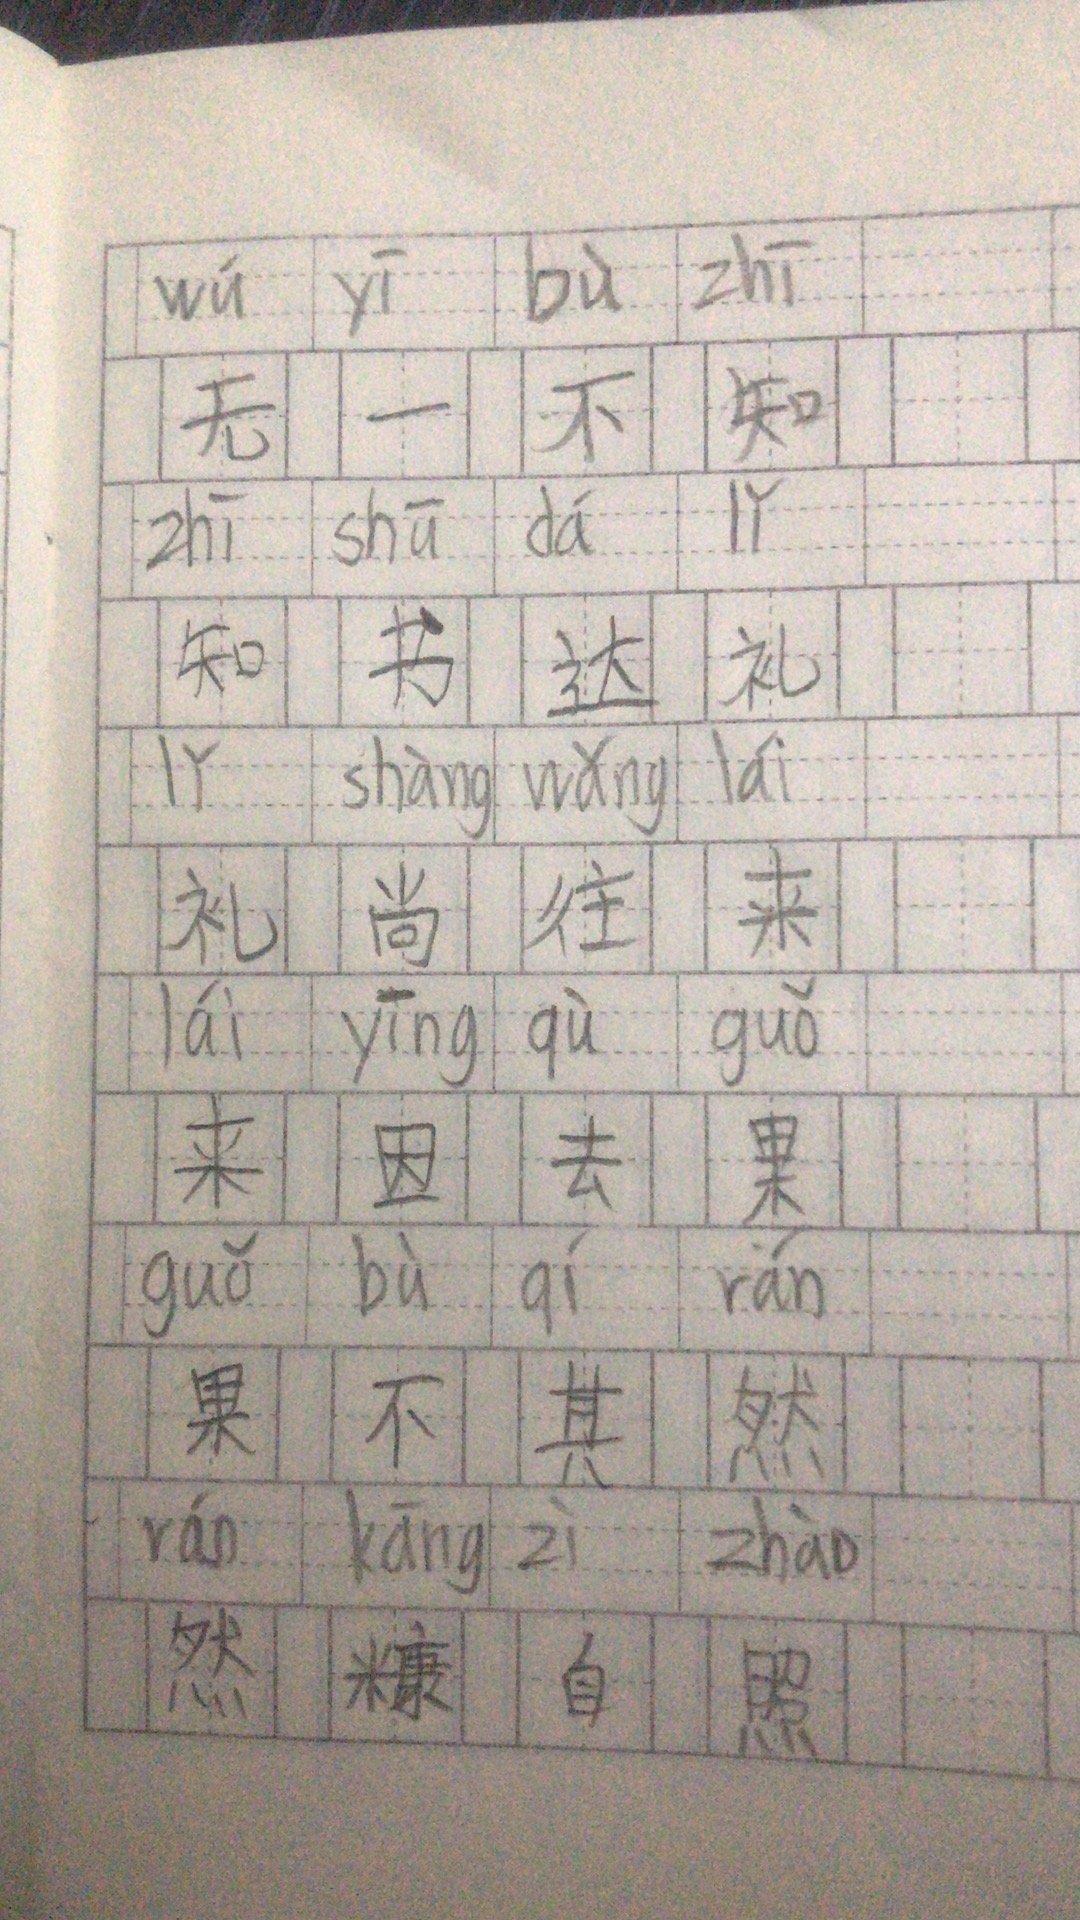 wú yī bù zhī
无一不知
zhī shū dá lǐ
知书达礼
lǐ shàng wǎng lái
礼尚往来
lái yīng qù guǒ
来因去果
guǒ bù qí rán
果不其然
rán kāng zì zhào
然糠自照